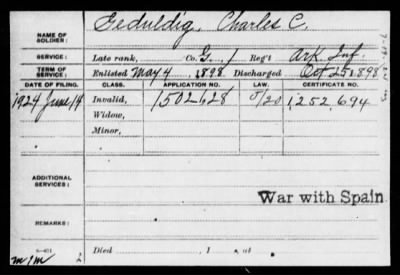 NAME OF SOLDIER: Geduldig, Charles C.
SERVICE: Late rank, Co. G, 1 Reg't Ark Inf.
TERM OF SERVICE: Enlisted May 4, 1898, Discharged Oct 25 1898
DATE OF FILING. CLASS. APPLICATION NO. LAW. CERTIFICATE NO.
1924 June 14 Invalid, 1502628 5/20 1,252,694
Widow,
Minor,
ADDITIONAL SERVICES:
War with Spain
REMARKS:
Died , 1 , at